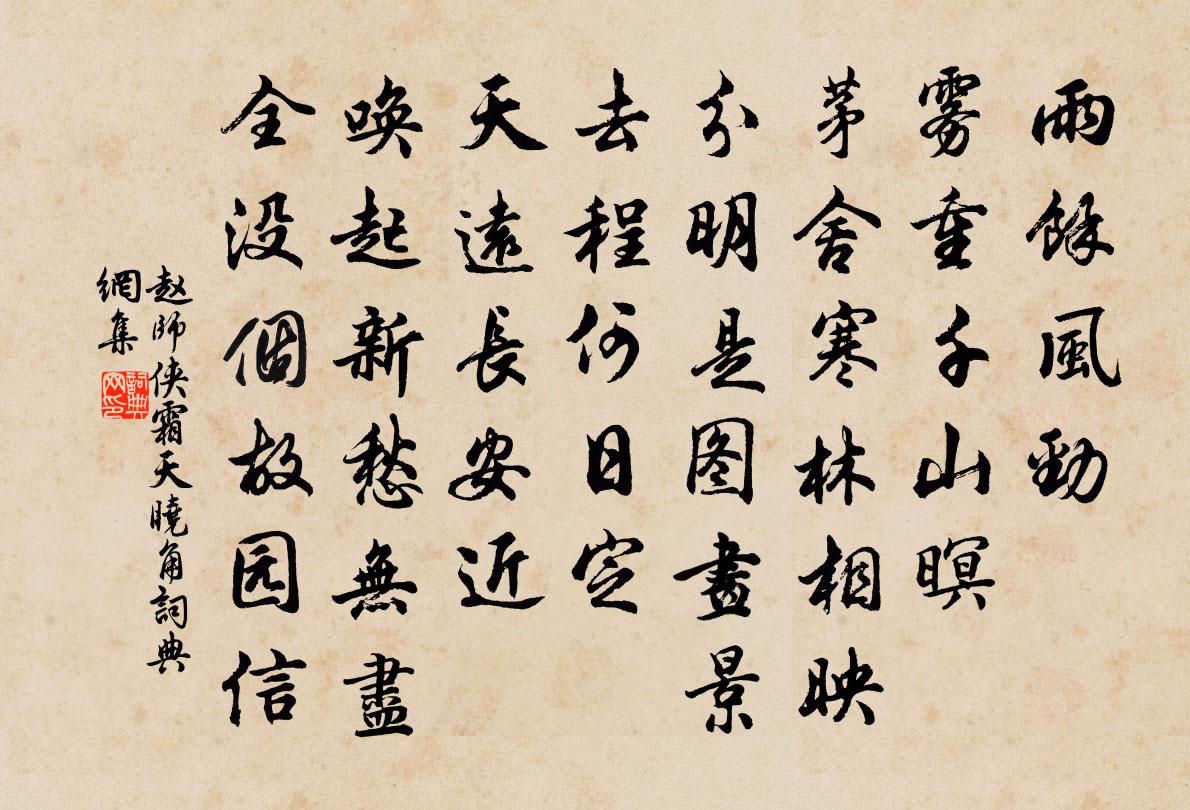 雨餘風勁
霧重千山暝
茅舍寒林相映
分明是图畫景
去程何日定
天遠長安近
喚起新愁無盡
全没個故园信
赵師侠霜天曉角詞典
網集
詞典
网印